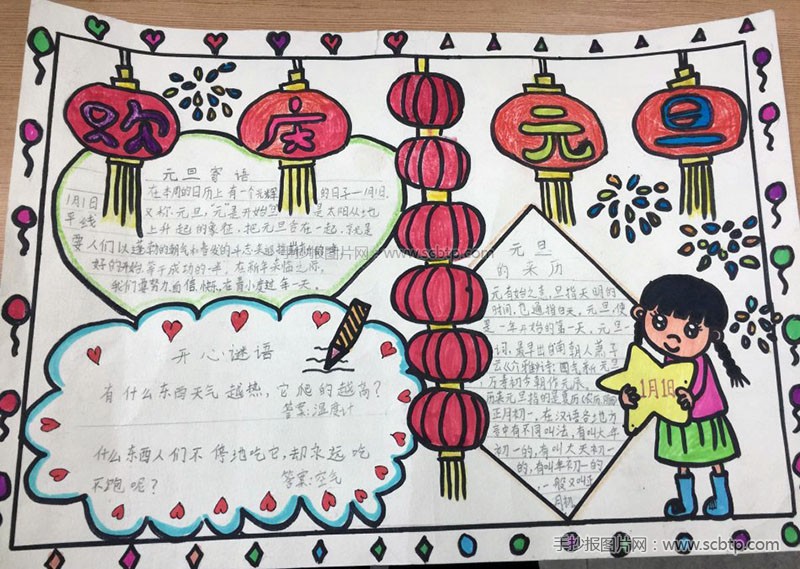 欢庆元旦
元旦寄语
在本周的日历上有一个元辉 的日子一1月1日.
1月1日又称元旦,"元"是开始 是太阳从地
平线上升起的象征,把元旦合在一起,就是
要人们以蓬勃的朝气和奋发的斗志来
好的开始等于成功的一半,在新年来临之际,
我们要努力
开心谜语
有什么东西天气越热,它爬的越高?
答案:温度计
什么东西人们不停地吃它,却永远吃
不饱呢?
答案:空气
元旦
的来历
元有始之意,旦指天明的
时间,也通指白天。元旦,便
是一年开始的第一天,元旦一
词,最早出自南朝人萧子
云《介雅》诗:"四气新元旦
万寿初今朝"作元辰。
历来元旦指的是夏历
正月初一,在汉语各地方
言中有不同叫法,有叫大年
初一的,有叫大天初一
的,有叫年初一的
一般又叫正
月初
1月1日
手抄报图片网:www.scbtp.com
手抄报图片网:www.scbtp.com